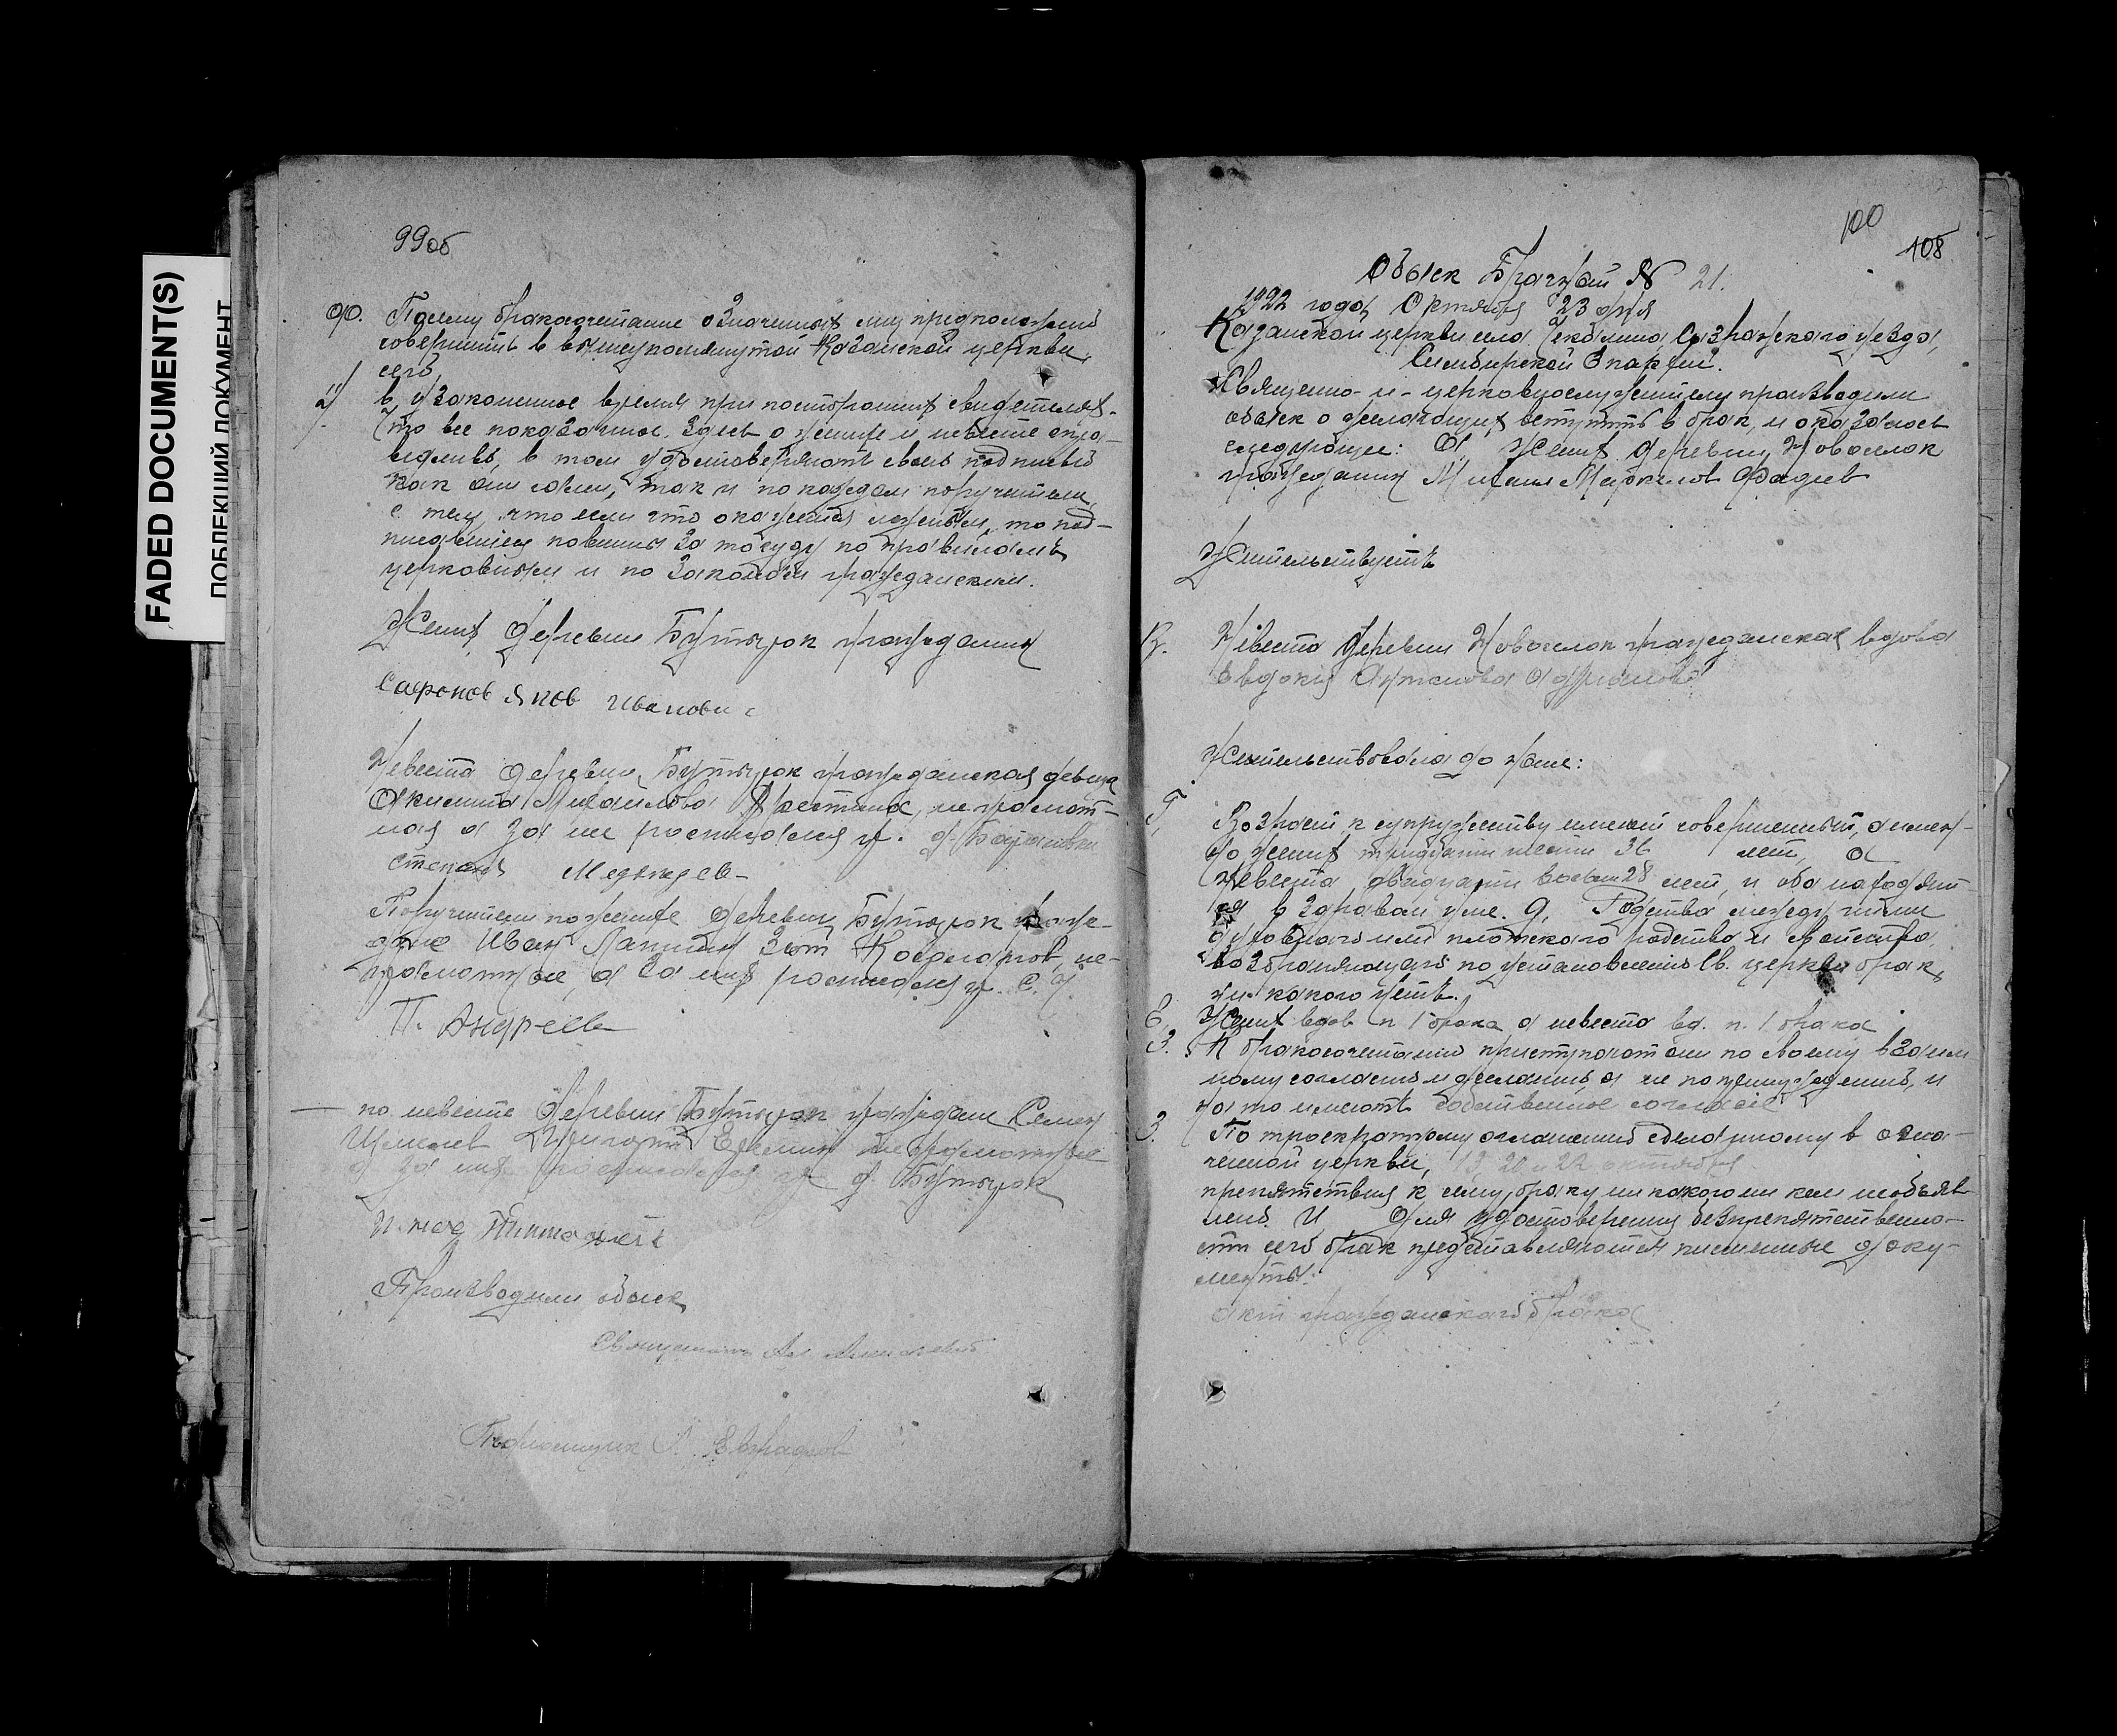 FADED DOCUMENT(S)
ПОБЛЕКШИЙ ДОКУМЕНТ
99об
Посему бракосочетание означенных лиц предположено
совершить в вышеупомянутой Казанской церкви
сего
в узаконенное время при посторонних свидетелях.
Что все показанное здесь о женихе и невесте спра-
ведливо, в том удостоверяют своею подписью
как они сами, так и по каждом поручители,
с тем, что если что окажется ложным, то под-
писавшиеся повинны за то суду по правилам
церковным и по законам гражданским.
Жених деревни Бутырок гражданин
Сафонов Яков Иванови
Невеста деревни Бутырок гражданская девица
Акилина Михайлова неграмот-
ная а за нее росписался гр. д.
степан Медведев
Поручители по женихе деревни Бутырок граж-
дане Иван Лапшин
грамотные, а за них росписался гр. с.
П. Андреев
по невесте деревни Бутырок граждане Семен
неграмотные
а за них росписался гр. д. Бутырок
Производили обыск
Священник Ал.
Псаломщик
100
108
Обыск Брачный № 21.
1922 года Октября 23 дня
Казанской церкви села Сызранского уезда,
Симбирской Епархии.
Священно-и-церковнослужители производили
обыск о желающих вступить в брак, и оказалось
следующее: А, Жених деревни Новоселок
гражданин Михаил Маркелов Фадеев
Жительствует
В. Невеста деревни Новоселок гражданская вдова
Евдокия
Жительствовала до ныне:
Г, Возраст к супружеству имеют совершенный, а имен-
но жених тридцати шести 36 лет, а
невеста двадцати восьми 28 лет, и оба находят-
ся в здравом уме. Д, Родства между ними
духовного или плотского родства и свойства,
возбраняющего по установлению Св. церкви брак,
никакого нет.
Е, Жених вдов п. 1 брака а невеста вд. п. 1 брака
З. К бракосочетанию приступают они по своему взаим
ному согласию и желанию, а не по принуждению, и
на то имеют собственное согласие
З. По троекратному оглашению сделанному в озна-
ченной церкви, 20 и 22 октября
препятствия к сему браку никакого ни кем не объяв-
лено. И Для удостоверения безпрепятственно-
сти сего брак представляются письменные доку-
менты:
акт гражданского брака